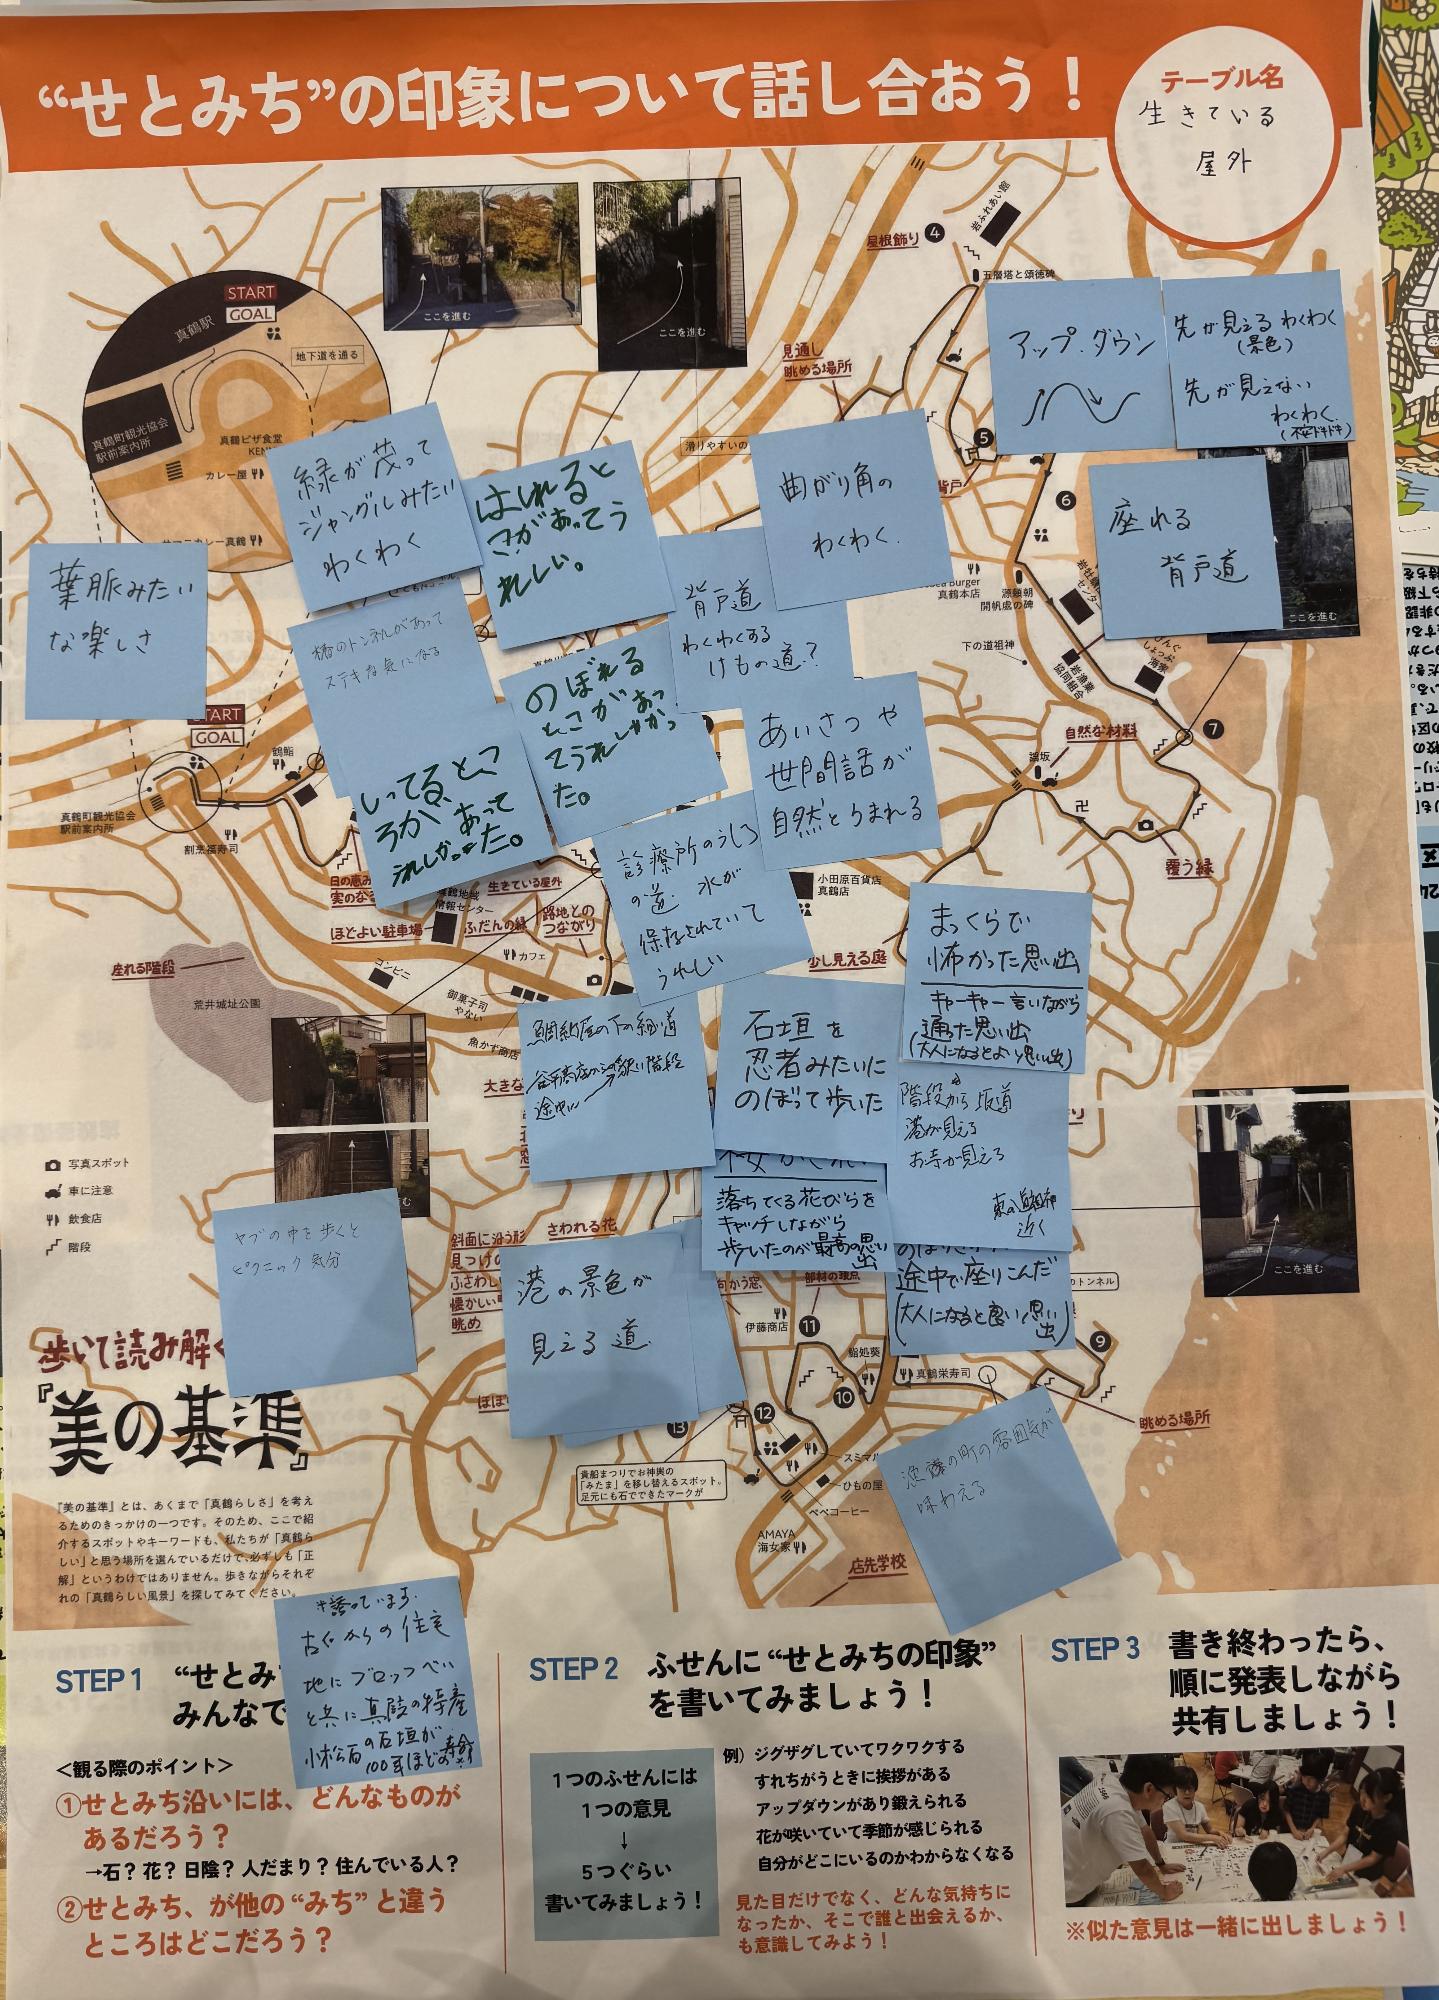 “せとみち”の印象について話し合おう！
テーブル名
生きている
屋外
START
GOAL
真鶴駅
地下道を通る
真鶴町観光協会
駅前案内所
真鶴ピザ食堂
カレー屋
ここを進む
ここを進む
屋根飾り
4
岩ふれあい館
五層塔と頌徳碑
見通し
眺める場所
滑りやすいの
5
アップ．ダウン
先が見える わくわく
(景色)
先が見えない
わくわく．
6
座れる
背戸道
ここを進む
緑が茂って
ジャングルみたい
わくわく
はしれると
こがあってう
れしい。
曲がり角の
わくわく．
葉脈みたい
な楽しさ
椿のトンネルがあって
ステキな気になる
背戸道
わくわくする
けもの道？
真鶴本店
源頼朝
開帆處の碑
下の道祖神
岩漁業
協同組合
海家
のぼれる
とこがあっ
てうれしかっ
た。
あいさつ や
世間話が
自然とうまれる
自然な材料
7
START
GOAL
鶴鮨
真鶴町観光協会
駅前案内所
割烹福寿司
しってる、とこ
ろが、あって
うれしかった。
診療所のうしろ
の道． 水が
保存されていて
うれしい
小田原百貨店
真鶴店
覆う緑
実のなる
真鶴地域
情報センター
生きている屋外
ほどよい駐車場
ふだんの緑
路地との
つながり
少し見える庭
座れる階段
荒井城址公園
コンビニ
カフェ
御菓子司
やない
魚かず商店
まっくらで
怖かった思い出
キャーキャー言いながら
通った思い出
(大人になるとよい思い出)
石垣を
忍者みたいに
のぼって歩いた
途中に
階段から 坂道
港が見える
お寺が見える
近く
落ちてくる花びらを
キャッチしながら
歩いたのが最高の思い
出
途中で座りこんだ
(大人になると良い思い
出)
ここを進む
写真スポット
車に注意
飲食店
階段
ヤブの中を歩くと
ピクニック気分
斜面に沿う形
見つけの
ふさわしい
懐かしい
眺め
さわれる花
港の景色が
見える道．
部材の接点
伊藤商店
11
鮨処葵
10
真鶴栄寿司
9
眺める場所
12
13
貴船まつりでお神輿の
「みたま」を移し替えるスポット。
足元にも石でできたマークが
スミマル
ひもの屋
ペペコーヒー
AMAYA
海女家
店先学校
漁師の町の雰囲気が
味わえる
歩いて読み解く
『美の基準』
『美の基準』とは、あくまで「真鶴らしさ」を考え
るためのきっかけの一つです。そのため、ここで紹
介するスポットやキーワードも、私たちが「真鶴ら
しい」と思う場所を選んでいるだけで、必ずしも「正
解」というわけではありません。歩きながらそれぞ
れの「真鶴らしい風景」を探してみてください。
古くからの住宅
地にブロックベい
と共に真鶴の特産
小松石の石垣が
100年ほどの
STEP 1
“せとみ
みんなで
<観る際のポイント>
①せとみち沿いには、どんなものが
あるだろう？
→石？花？日陰？人だまり？住んでいる人？
②せとみち、が他の“みち”と違う
ところはどこだろう？
STEP 2
ふせんに“せとみちの印象”
を書いてみましょう！
1つのふせんには
1つの意見
↓
5つぐらい
書いてみましょう！
例）ジグザグしていてワクワクする
すれちがうときに挨拶がある
アップダウンがあり鍛えられる
花が咲いていて季節が感じられる
自分がどこにいるのかわからなくなる
見た目だけでなく、どんな気持ちに
なったか、そこで誰と出会えるか、
も意識してみよう！
STEP 3
書き終わったら、
順に発表しながら
共有しましょう！
※似た意見は一緒に出しましょう！